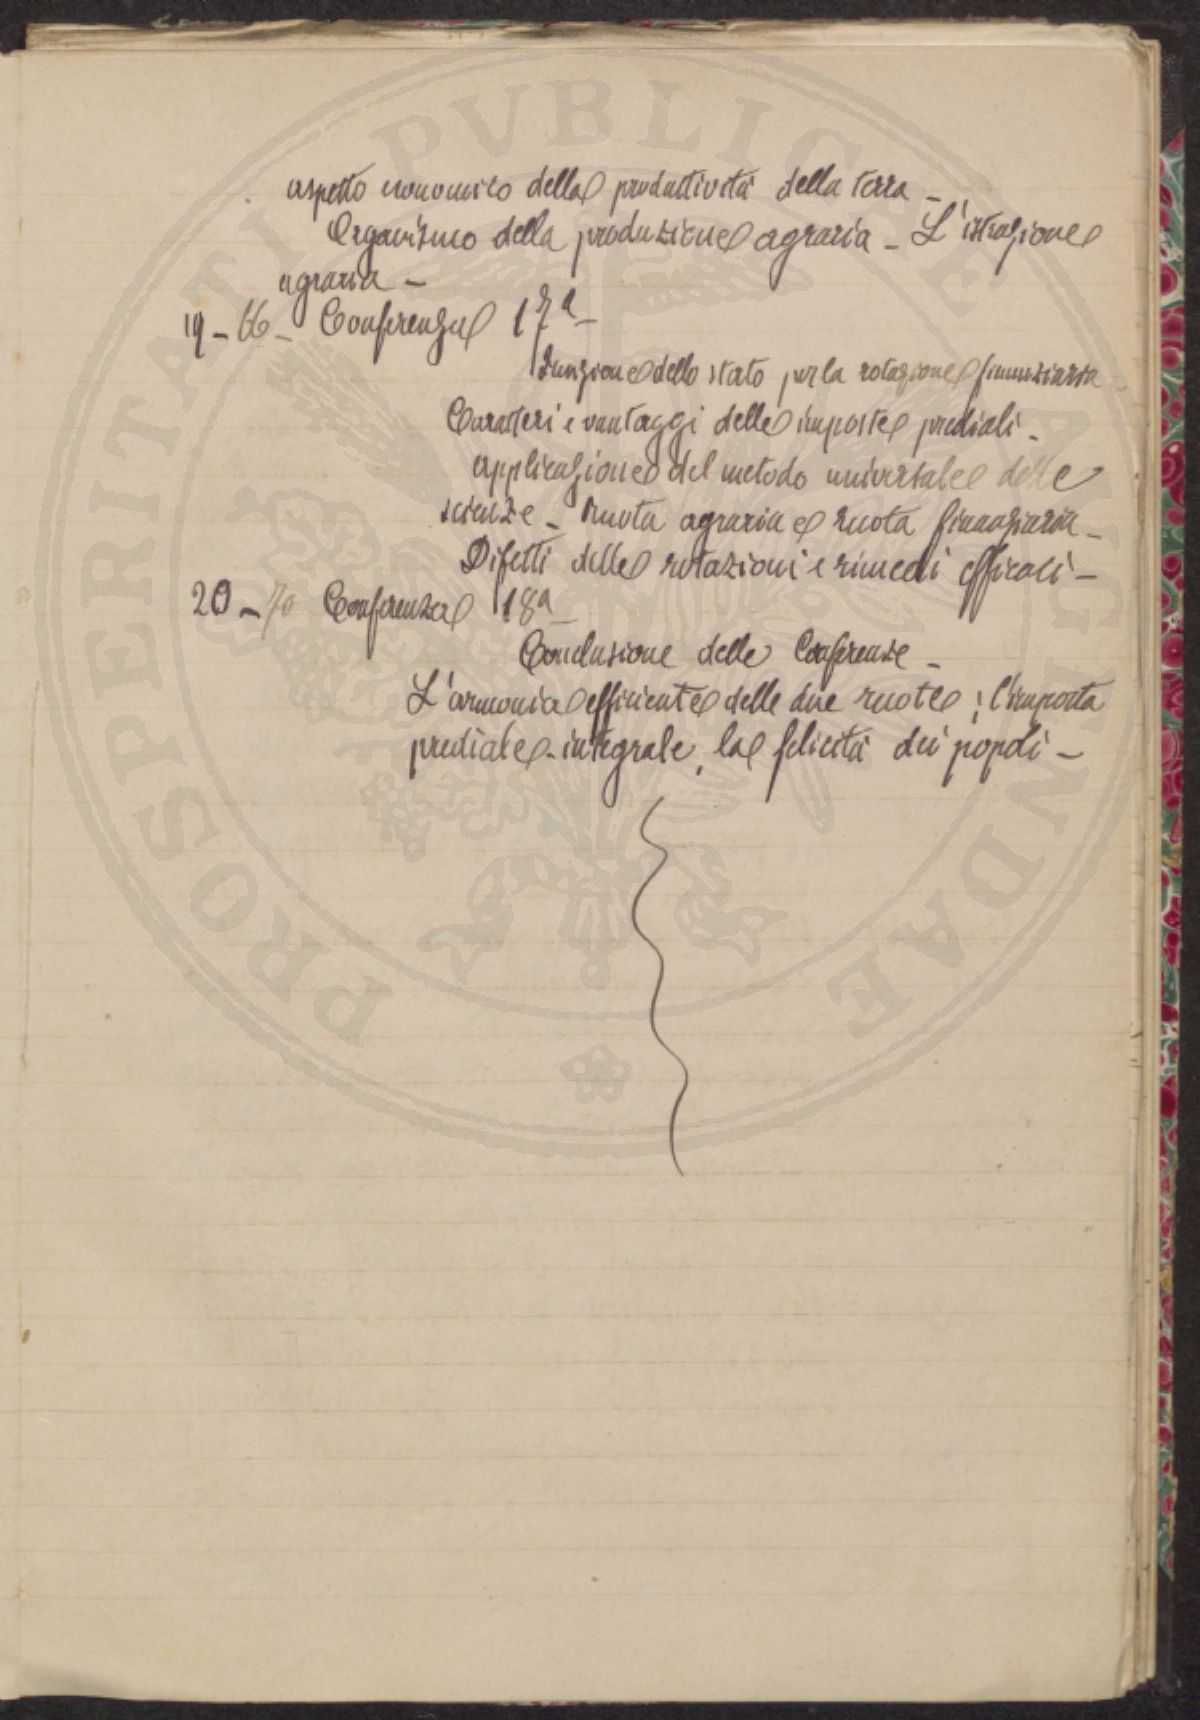 aspetto economico della produttività della terra -
Organismo della produzione agraria - L'istruzione
agraria -
19 - 66 - Conferenza 17ª -
Funzione dello stato per la rotazione finanziaria -
Caratteri e vantaggi delle imposte prediali -
applicazione del metodo universale delle
scienze - ruota agraria e ruota finanziaria -
Difetti delle rotazioni e rimedi efficaci -
20 - 70 Conferenza 18ª
Conclusione delle Conferenze -
L'armonia efficiente delle due ruote; l'imposta
prediale-integrale, la felicità dei popoli -
PROSPERITATI PVBLICAE AVGENDAE